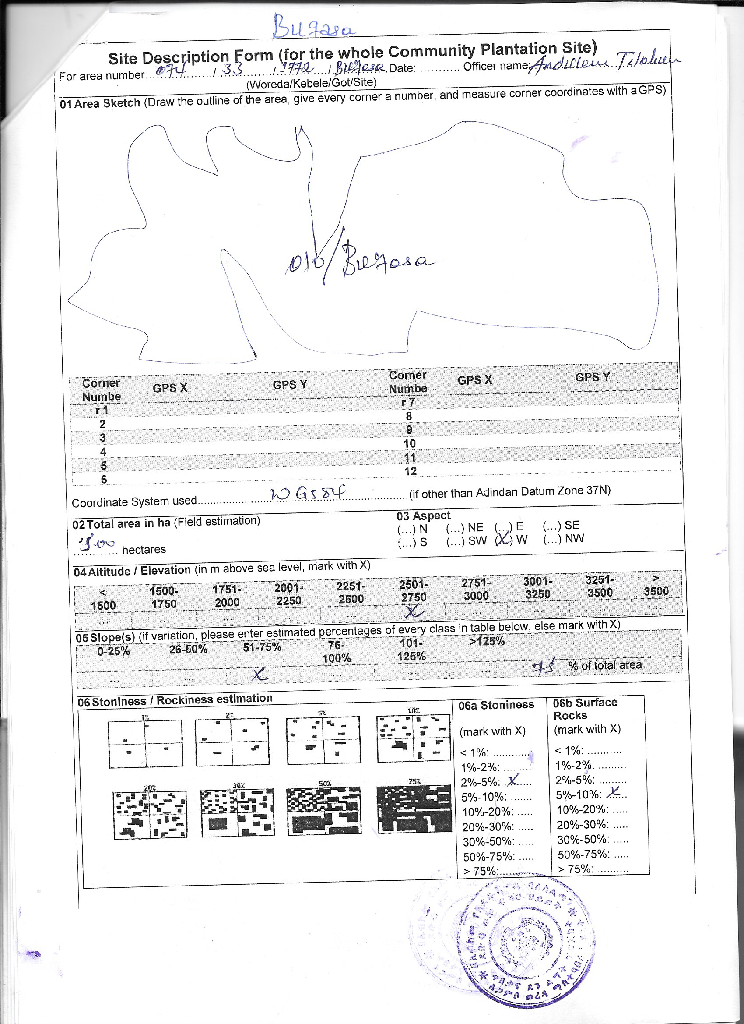 Bugasa
Site Description Form (for the whole Community Plantation Site)
For area number 074 / 33 / Bugasa Date: ............ Officer name:
(Woreda/Kebele/Got/Site)
01 Area Sketch (Draw the outline of the area, give every corner a number, and measure corner coordinates with a GPS)
016/Bugasa
Corner Numbe GPS X GPS Y Corner Numbe GPS X GPS Y
r 1 r 7
2 8
3 9
4 10
5 11
6 12
Coordinate System used.............. WGS84 .............. (if other than Adindan Datum Zone 37N)
02 Total area in ha (Field estimation)
hectares
03 Aspect
(...) N (...) NE (...) E (...) SE
(...) S (...) SW (X) W (...) NW
04 Altitude / Elevation (in m above sea level, mark with X)
< 1500- 1751- 2001- 2251- 2501- 2751- 3001- 3251- >
1500 1750 2000 2250 2500 2750 3000 3250 3500 3500
X
05 Slope(s) (if variation, please enter estimated percentages of every class in table below, else mark with X)
0-25% 26-50% 51-75% 76- 101- >125%
100% 125%
X % of total area
06 Stoniness / Rockiness estimation
1% 2% 5% 10%
20% 30% 50% 75%
06a Stoniness
(mark with X)
< 1%: ............
1%-2%: ......
2%-5%: X.....
5%-10%: ......
10%-20%: .....
20%-30%: .....
30%-50%: .....
50%-75%: .....
> 75%:..........
06b Surface
Rocks
(mark with X)
< 1%: ...........
1%-2%. .........
2%-5%: .........
5%-10%: X...
10%-20%: .....
20%-30%: .....
30%-50%: .....
50%-75%: .....
> 75%: ..........